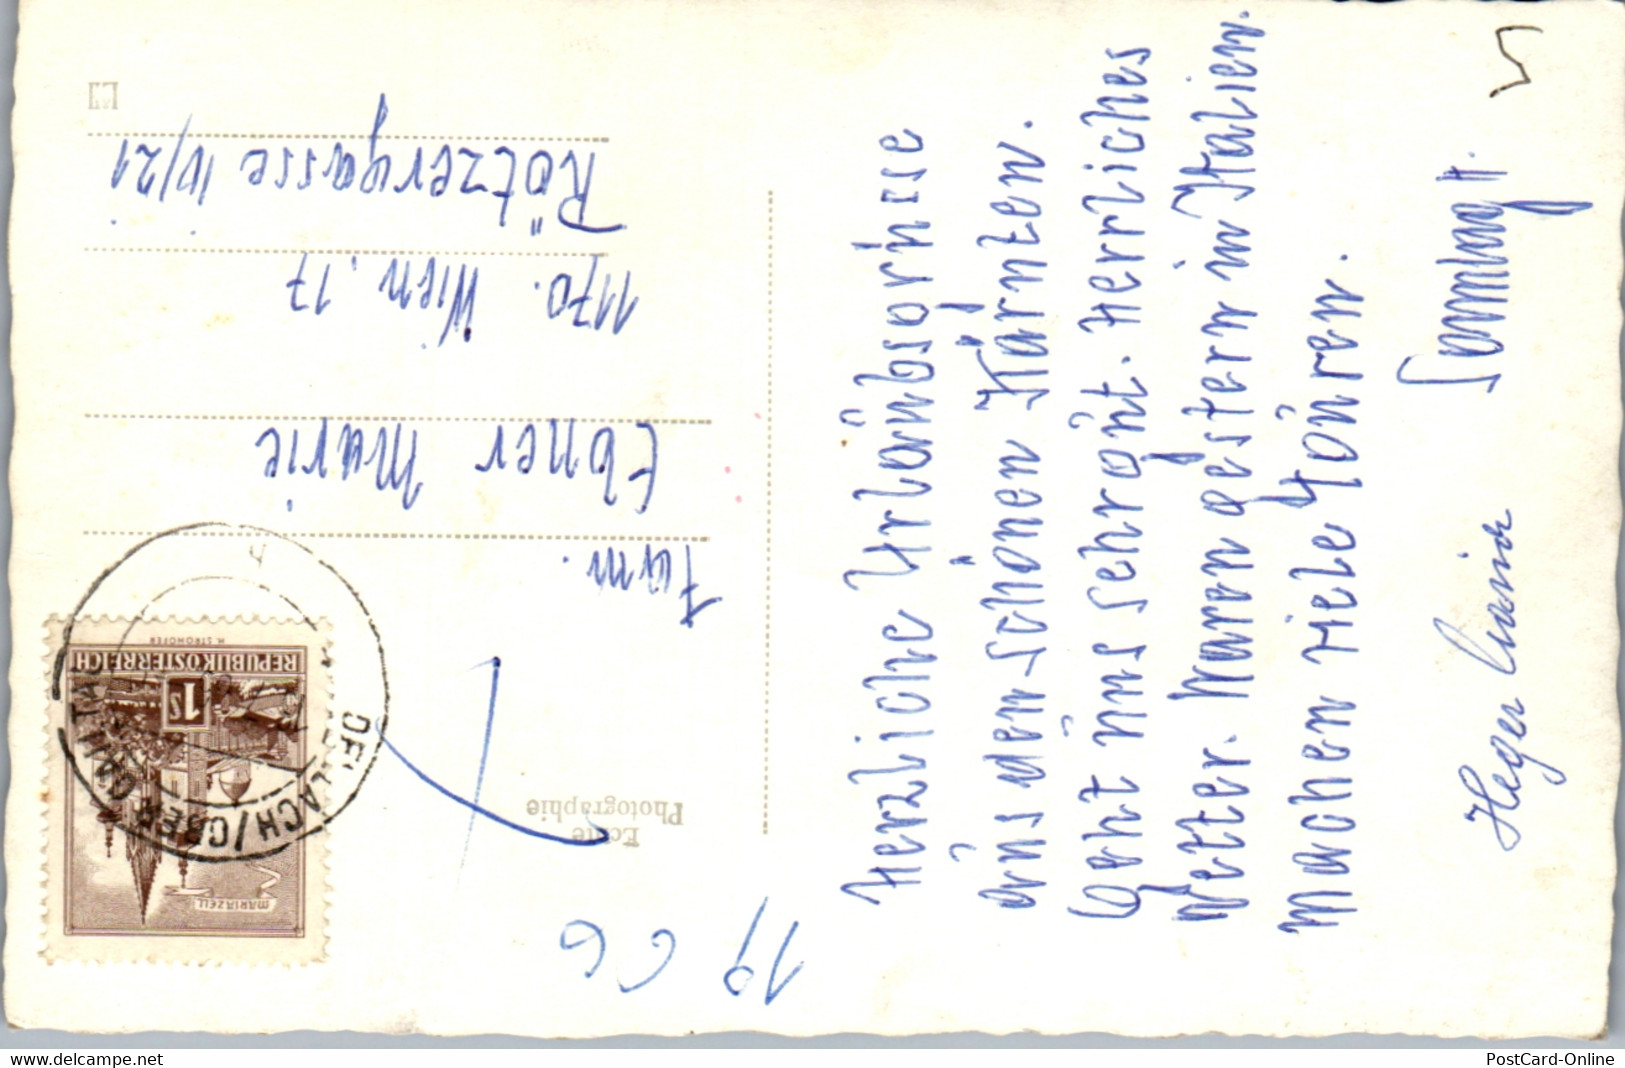 Herzliche Urlaubsgrüsse
aus dem schönen Kärnten.
Geht uns sehr gut. Herrliches
Wetter. Waren gestern in Italien.
Machen viele Touren.
Heger
1966
Echte
Photographie
Fam.
Ebner Marie
1170. Wien. 17
Rötzergasse 10/21
REPUBLIK ÖSTERREICH
1S
H. STROHOFER
MARIAZELL
DELLACH/OBER GAILTAL
delcampe.net
PostCard-Online